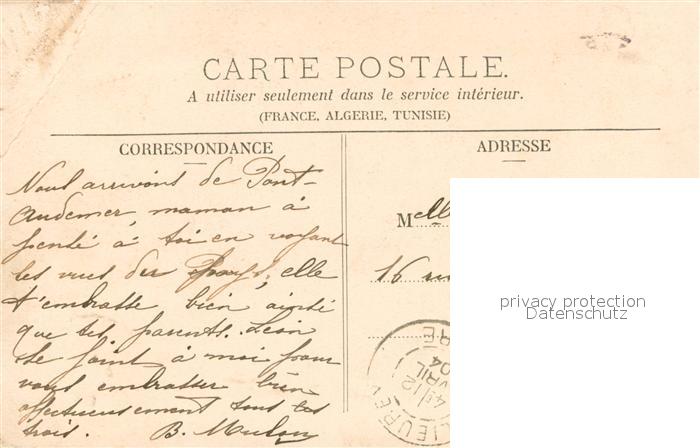 CARTE POSTALE.
A utiliser seulement dans le service intérieur.
(FRANCE, ALGERIE, TUNISIE)
CORRESPONDANCE
Nous arrivons de Pont-
Audemer, maman à
pensé à toi en voyant
les vues du Pays, elle
t'embrasse bien ainsi
que tes parents. Léon
se joint à moi pour
vous embrasser bien
affectueusement tous les
trois.
ADRESSE
Melle
16
privacy protection
Datenschutz
12
AVRIL
04
LIEUREY